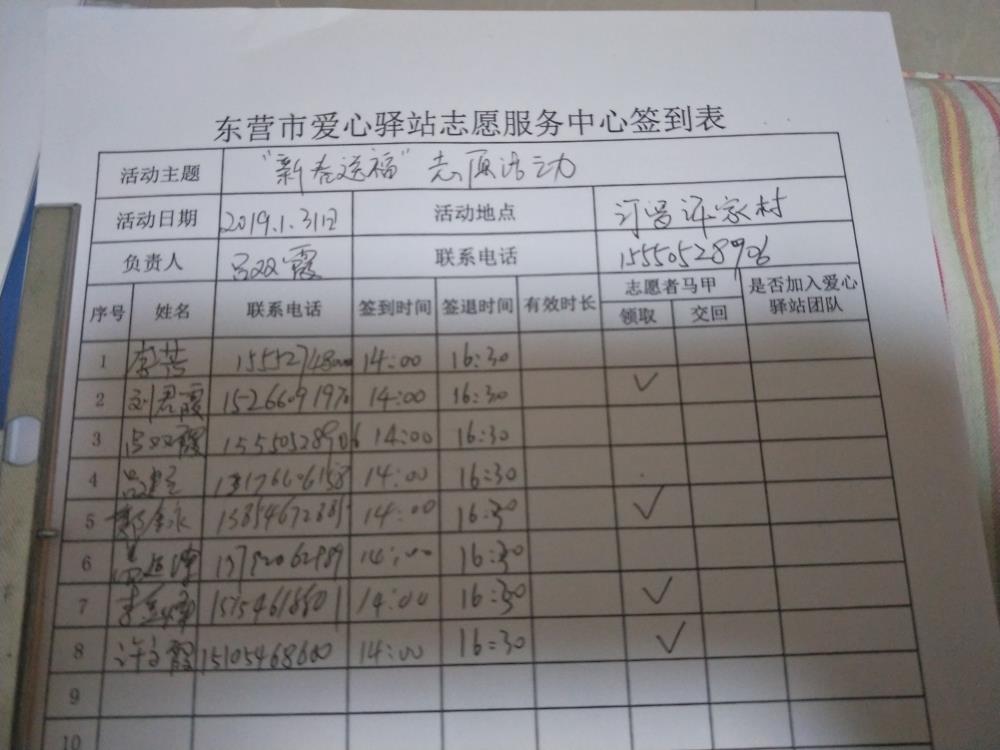 东营市爱心驿站志愿服务中心签到表
活动主题 "新春送福"志愿活动
活动日期 2019.1.31日 活动地点 许家村
负责人 吕双霞 联系电话 15550528906
序号 姓名 联系电话 签到时间 签退时间 有效时长 志愿者马甲 是否加入爱心驿站团队
领取 交回
1 李 14:00 16:30
2 刘君霞 15266091970 14:00 16:30 ✓
3 吕双霞 15550528906 14:00 16:30
4 14:00 16:30
5 14:00 16:30 ✓
6 14:00 16:30
7 李 14:00 16:30 ✓
8 许 霞 15105468600 14:00 16:30 ✓
9
10